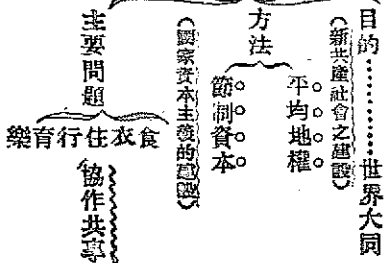 目的………世界大同
（新共產社會之建設）
方法
平均地權
節制資本
（國家資本主義的建設）
主要問題
食衣住行育樂
協作共享